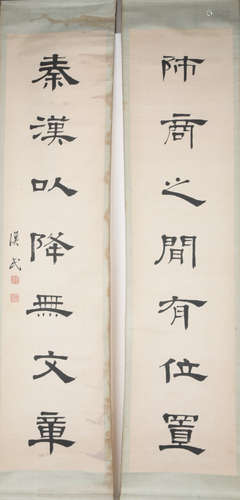 師商之間有位置
秦漢以降無文章
漢民